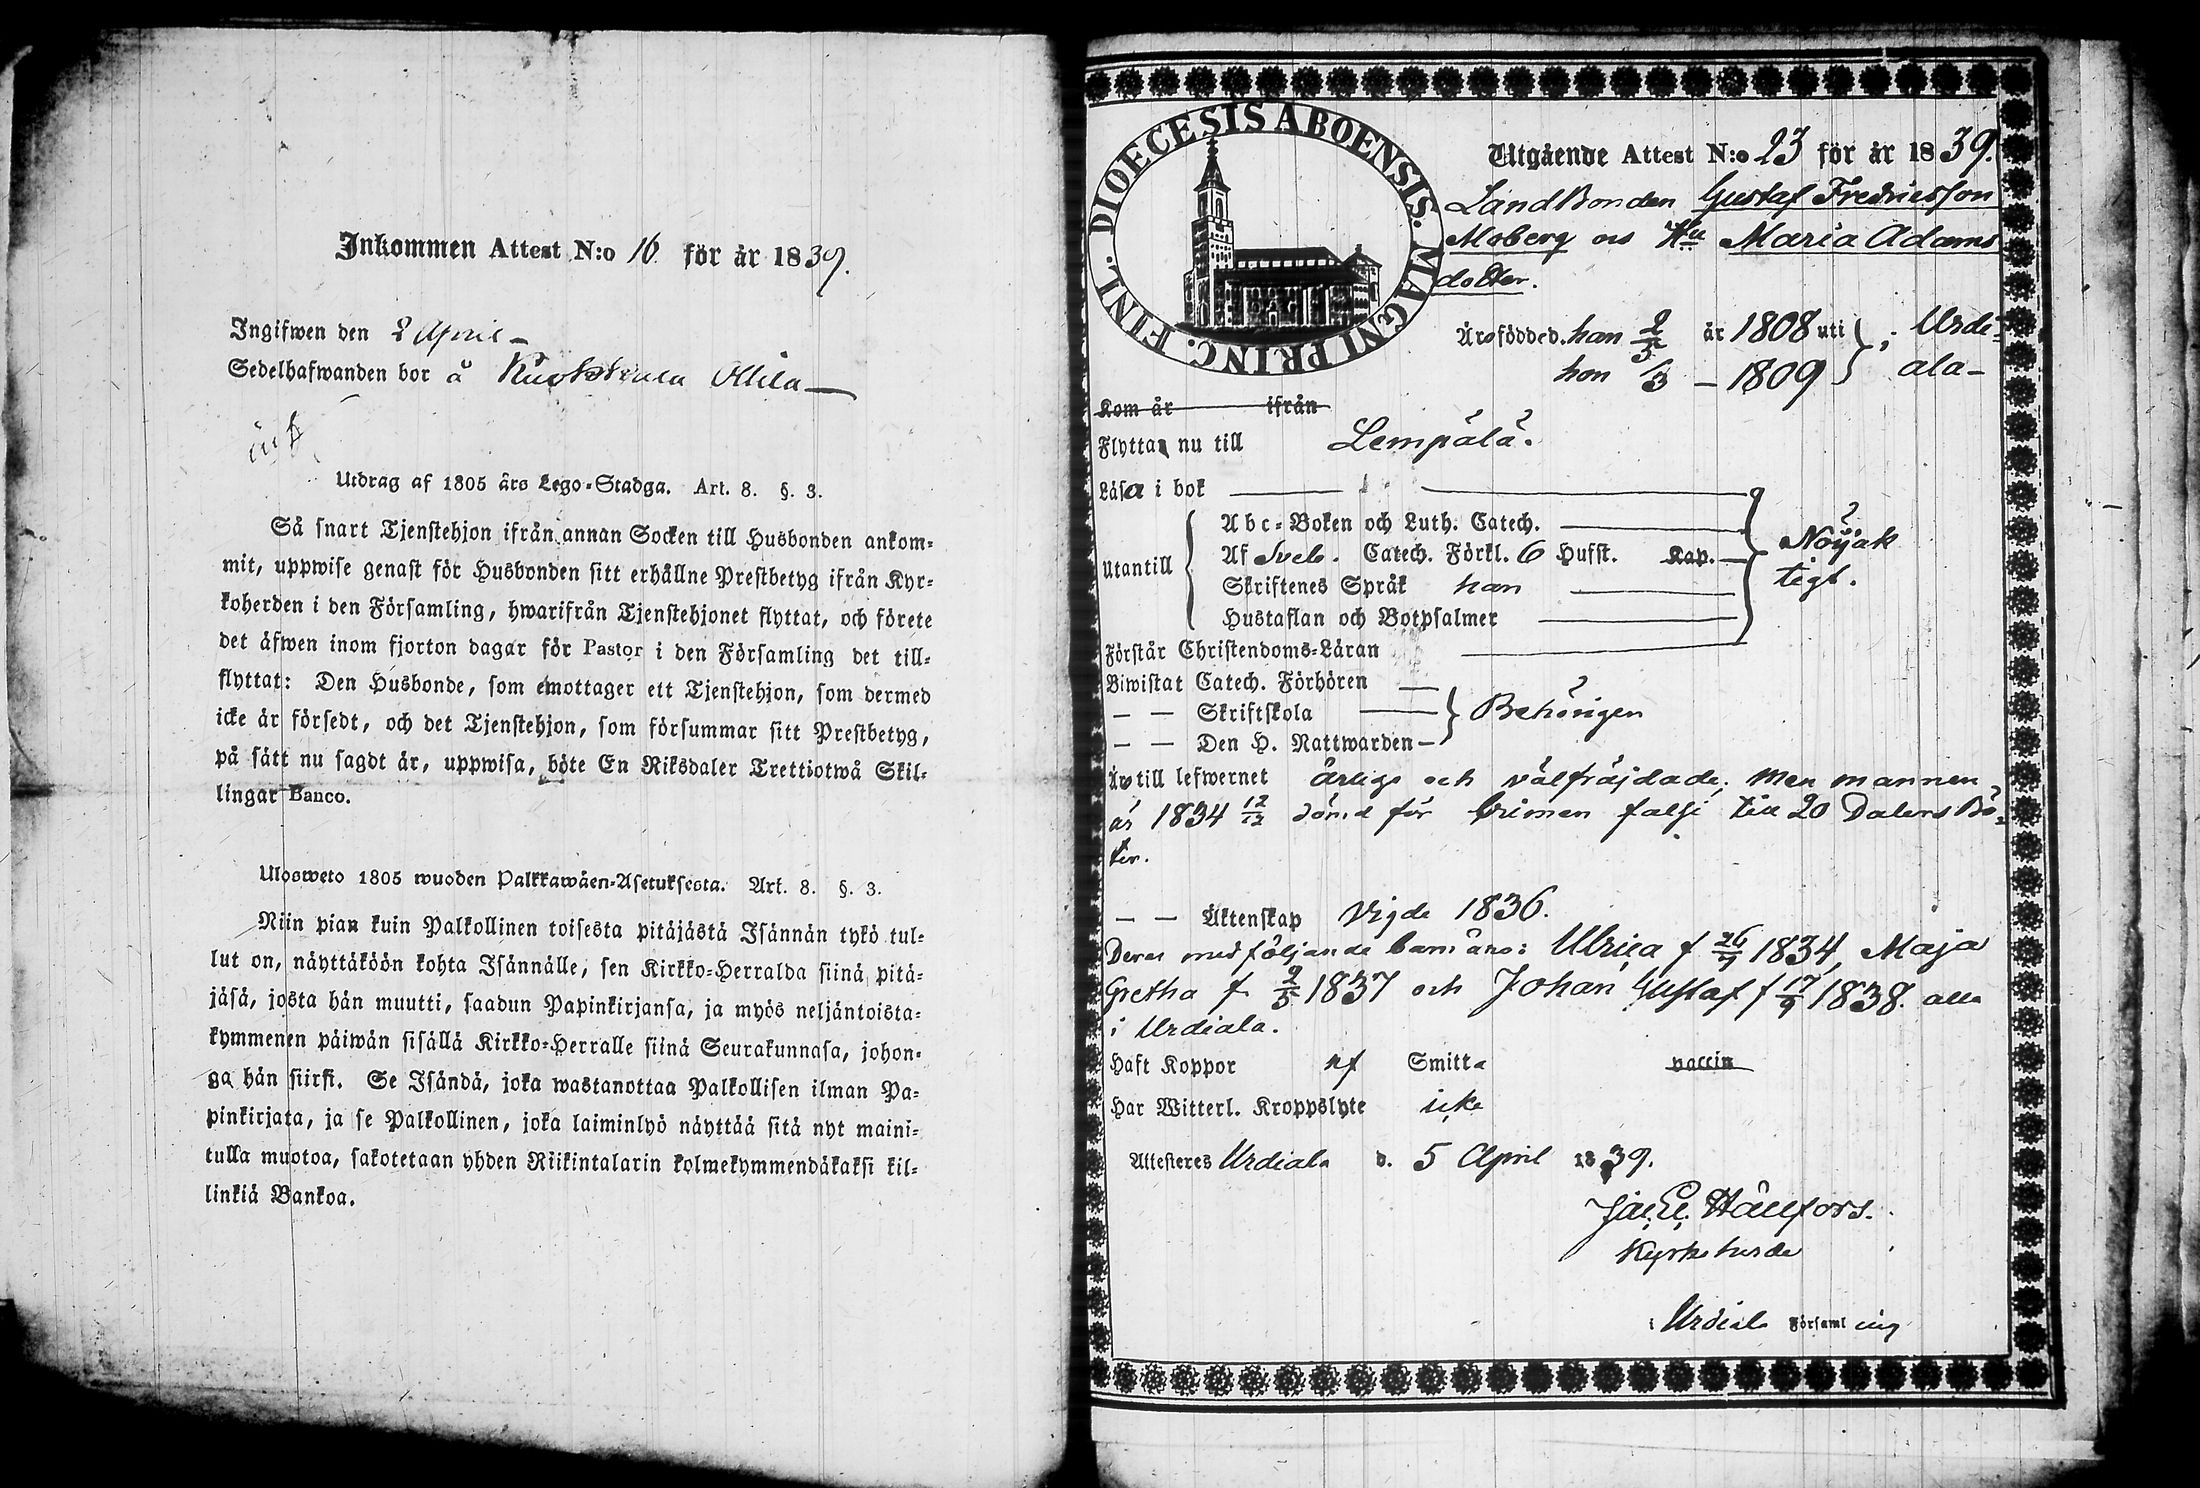 Inkommen Attest N:o 16 för år 1839.
Ingifwen den 2 April
Sedelhafwanden bor å Kuokkala Ollila
Utdrag af 1805 års Lego-Stadga. Art. 8. §. 3.
Så snart Tjenstehjon ifrån annan Socken till Husbonden ankom-
mit, uppwise genast för Husbonden sitt erhållne Prestbetyg ifrån Kyr-
koherden i den Församling, hwarifrån Tjenstehjonet flyttat, och förete
det äfwen inom fjorton dagar för Pastor i den Församling det till-
flyttat: Den Husbonde, som emottager ett Tjenstehjon, som dermed
icke är försedt, och det Tjenstehjon, som försummar sitt Prestbetyg,
på sätt nu sagdt är, uppwisa, böte En Riksdaler Trettiotwå Skil-
lingar Banco.
Ulosweto 1805 wuoden Palkkawäen-Asetuksesta. Art. 8. §. 3.
Niin pian kuin Palkollinen toisesta pitäjästä Isännän tykö tul-
lut on, näyttäköön kohta Isännälle, sen Kirkko-Herralda siinä pitä-
jäsä, josta hän muutti, saadun Papinkirjansa, ja myös neljäntoista-
kymmenen päiwän sisällä Kirkko-Herralle siinä Seurakunnasa, johon-
ga hän siirsi. Se Isändä, joka wastanottaa Palkollisen ilman Pa-
pinkirjata, ja se Palkollinen, joka laiminlyö näyttää sitä nyt maini-
tulla muotoa, sakotetaan yhden Riikintalarin kolmekymmendäkaksi kil-
linkiä Bankoa.
DIOECESIS ABOENSIS. MAGNI PRINC. FINL.
Utgående Attest N:o 23 för år 1839.
Landbonden Gustaf Fredricsson
Moberg os Hu Maria Adams
dotter.
Äro födde d. han 2/5 år 1808 uti } i Urdi-
hon /3 – 1809 ala –
Kom år ifrån
Flytta nu till Lempälä.
Läsa i bok
Abc-Boken och Luth. Catech.
Utantill Af Sveb. Catech. Förkl. 6 Hufst. Kap. Nöjak
Skriftenes Språk han tigt.
Hustaflan och Botpsalmer
Förstår Christendoms-Läran
Biwistat Catech. Förhören
— — Skriftskola Behörigen
— — Den H. Nattwarden
Äro till lefwernet ärlige och välfräjdade; men mannen
år 1834 12/12 dömd för crimen falsi till 20 Dalers Bö-
ter.
— — Äktenskap Vigde 1836.
Deras medföljande barn äro: Ulrica f 26/7 1834, Maja
Gretha f 2/5 1837 och Johan Gustaf f 17/9 1838. alla
i Urdiala.
Haft Koppor af Smitta vaccin
Har Witterl. Kroppslyte icke
Attesteres Urdiala d. 5 April 1839.
Jac. E. Hällfors.
Kyrkoherde
i Urdiala Församling